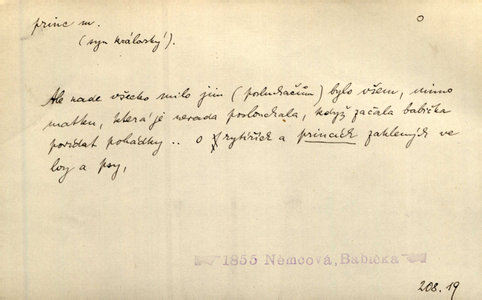 princ m.
o
(syn královský).
Ale nade všecko milo jim (posluchačům) bylo všem, mimo
matku, která je nerada poslouchala, když začala babička
povídat pohádky .. o rytířích a princích zakletých ve
lvy a psy,
1855 Němcová, Babička
208.19